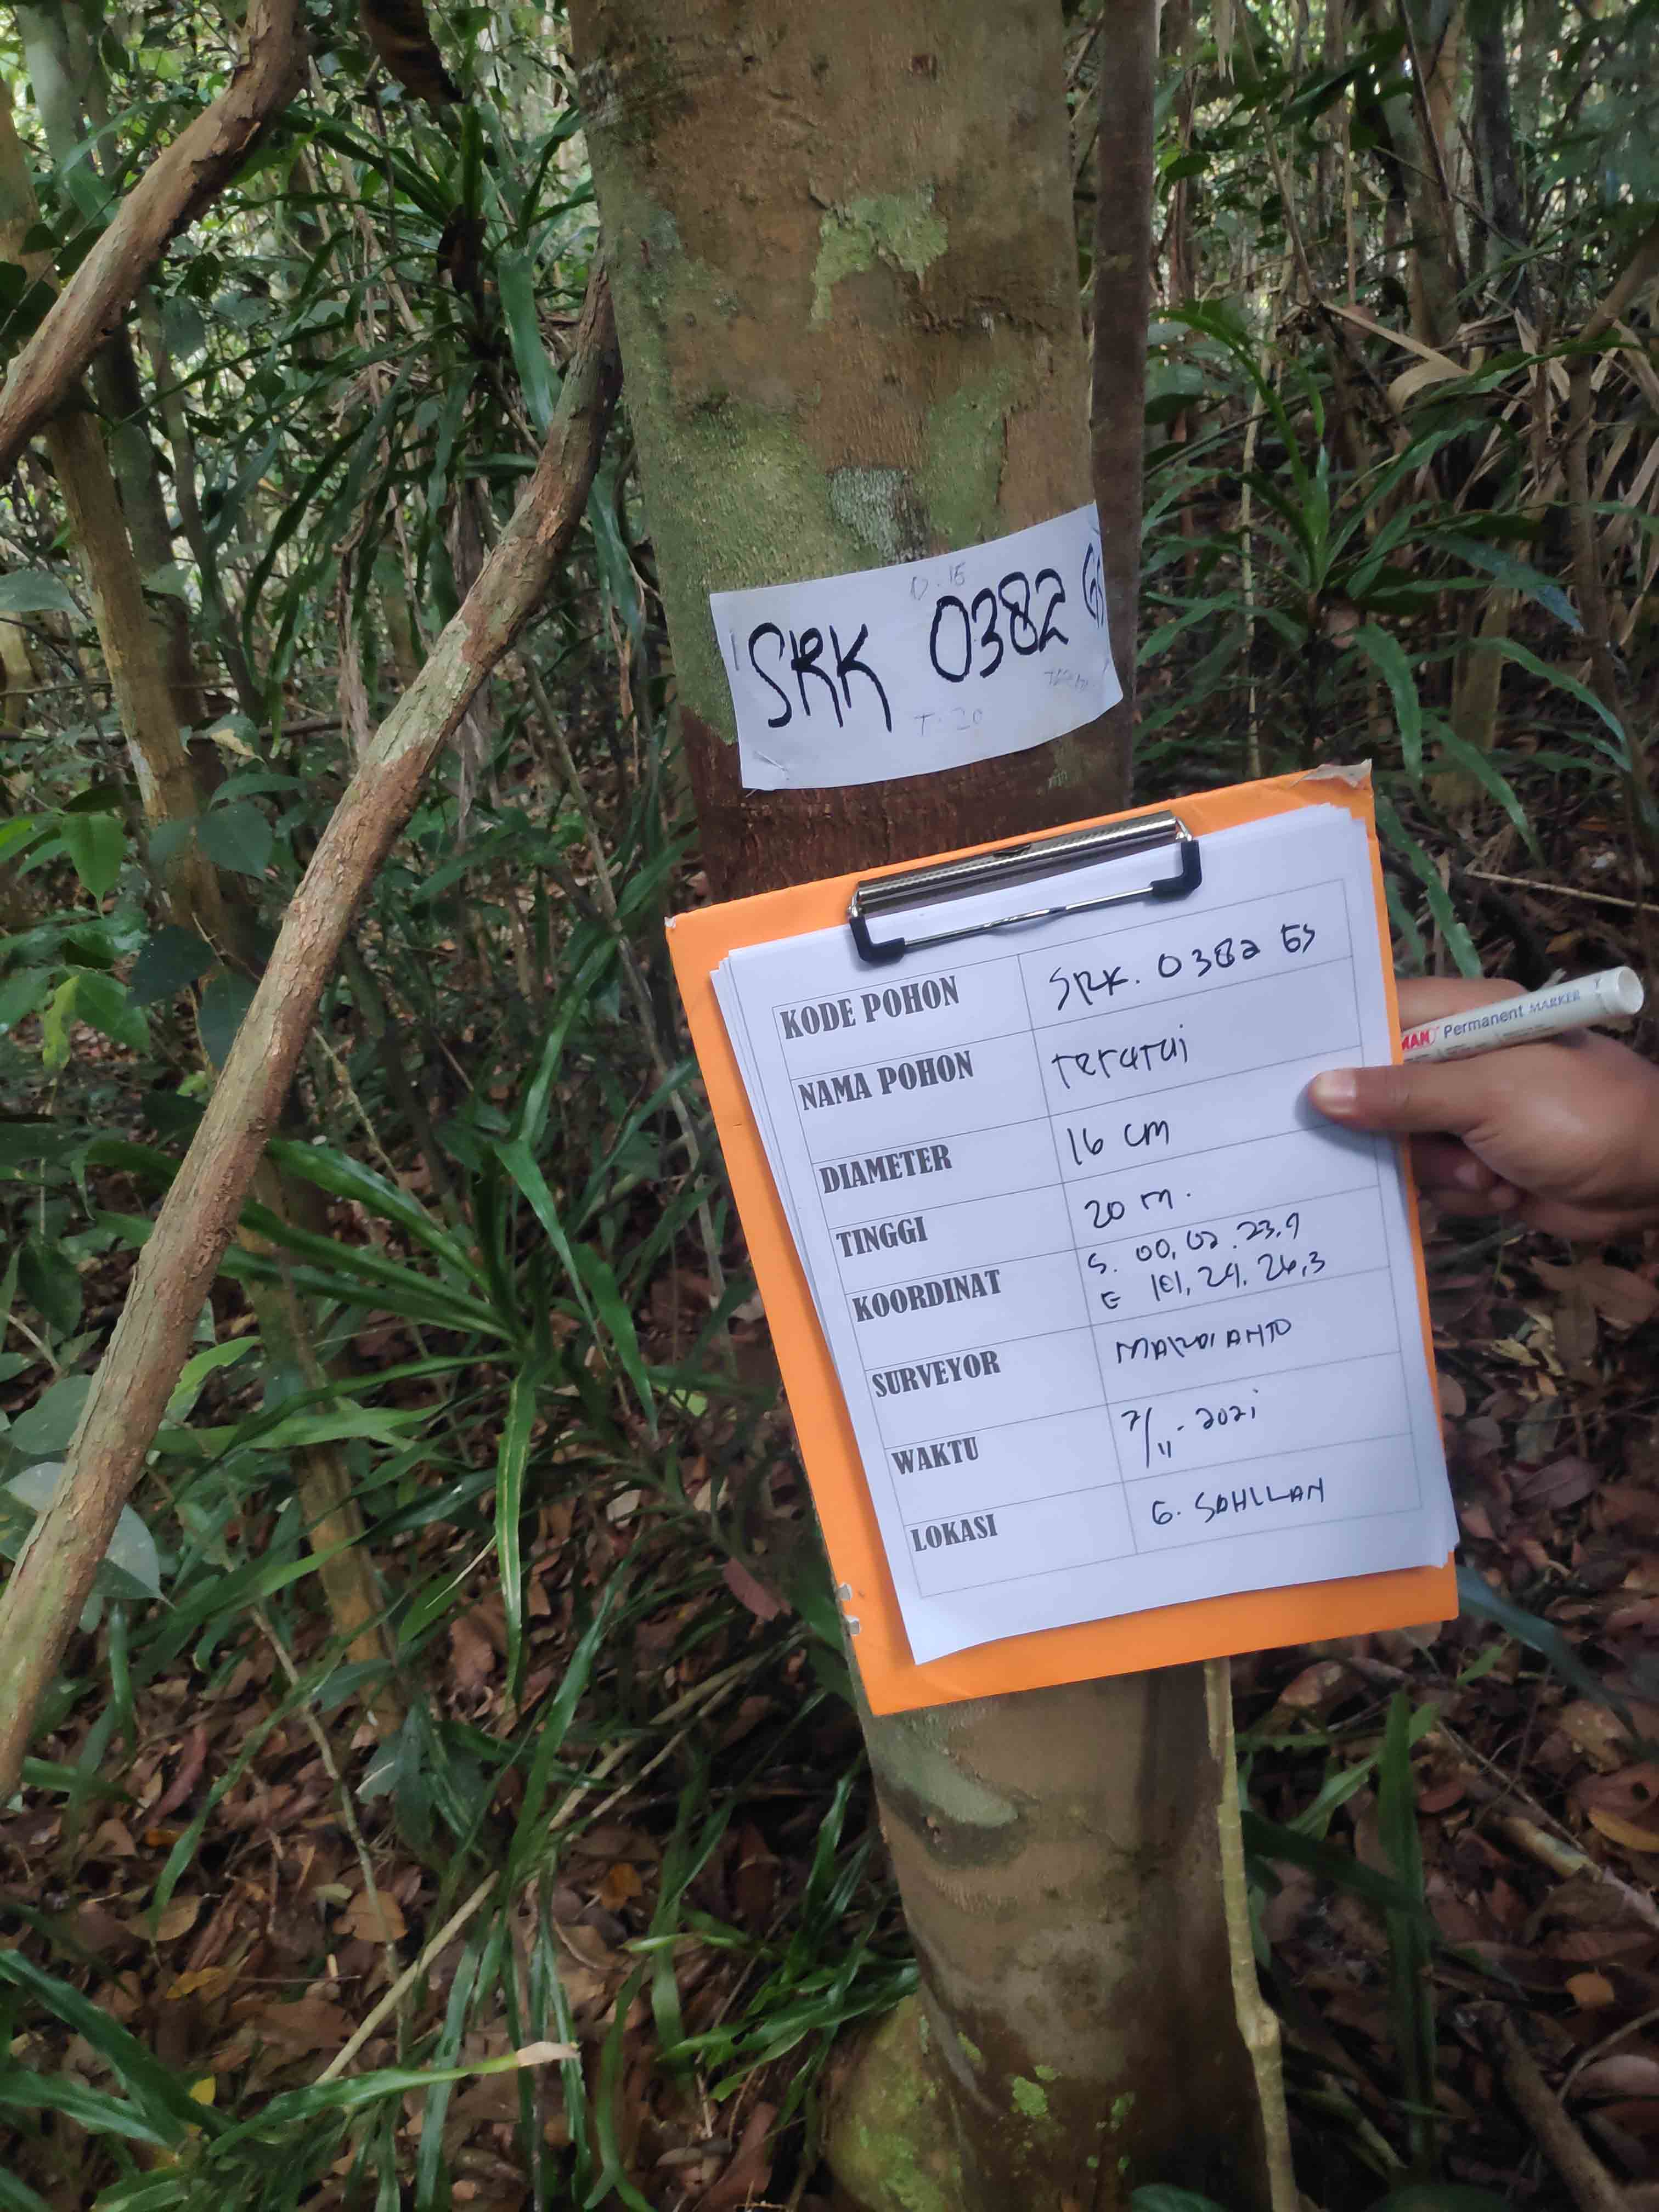 D. 16
SRK 0382
T. 20
KODE POHON SRK. 0382 GS
NAMA POHON teratai
DIAMETER 16 cm
TINGGI 20 m.
KOORDINAT S. 00, 02. 23,9
E 101, 29, 26,3
SURVEYOR MARDIANTO
WAKTU 7/11-2021
LOKASI G. SAHILAN
MAN Permanent MARKER